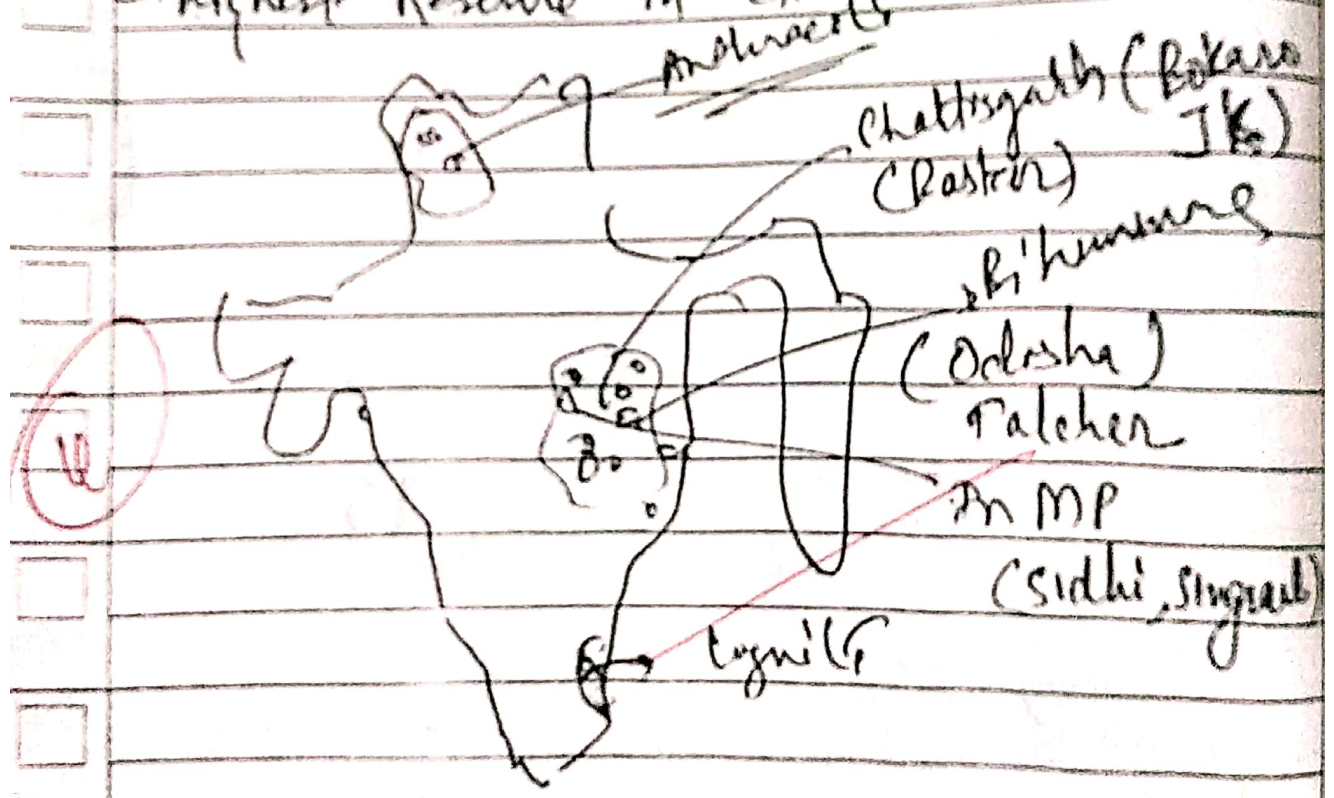 Highest Reserve in
Anthracite
Chattisgarh (Bokaro
JK)
(Bastar)
(Odisha)
Talcher
In MP
(Sidhi, Singrauli)
Lignite